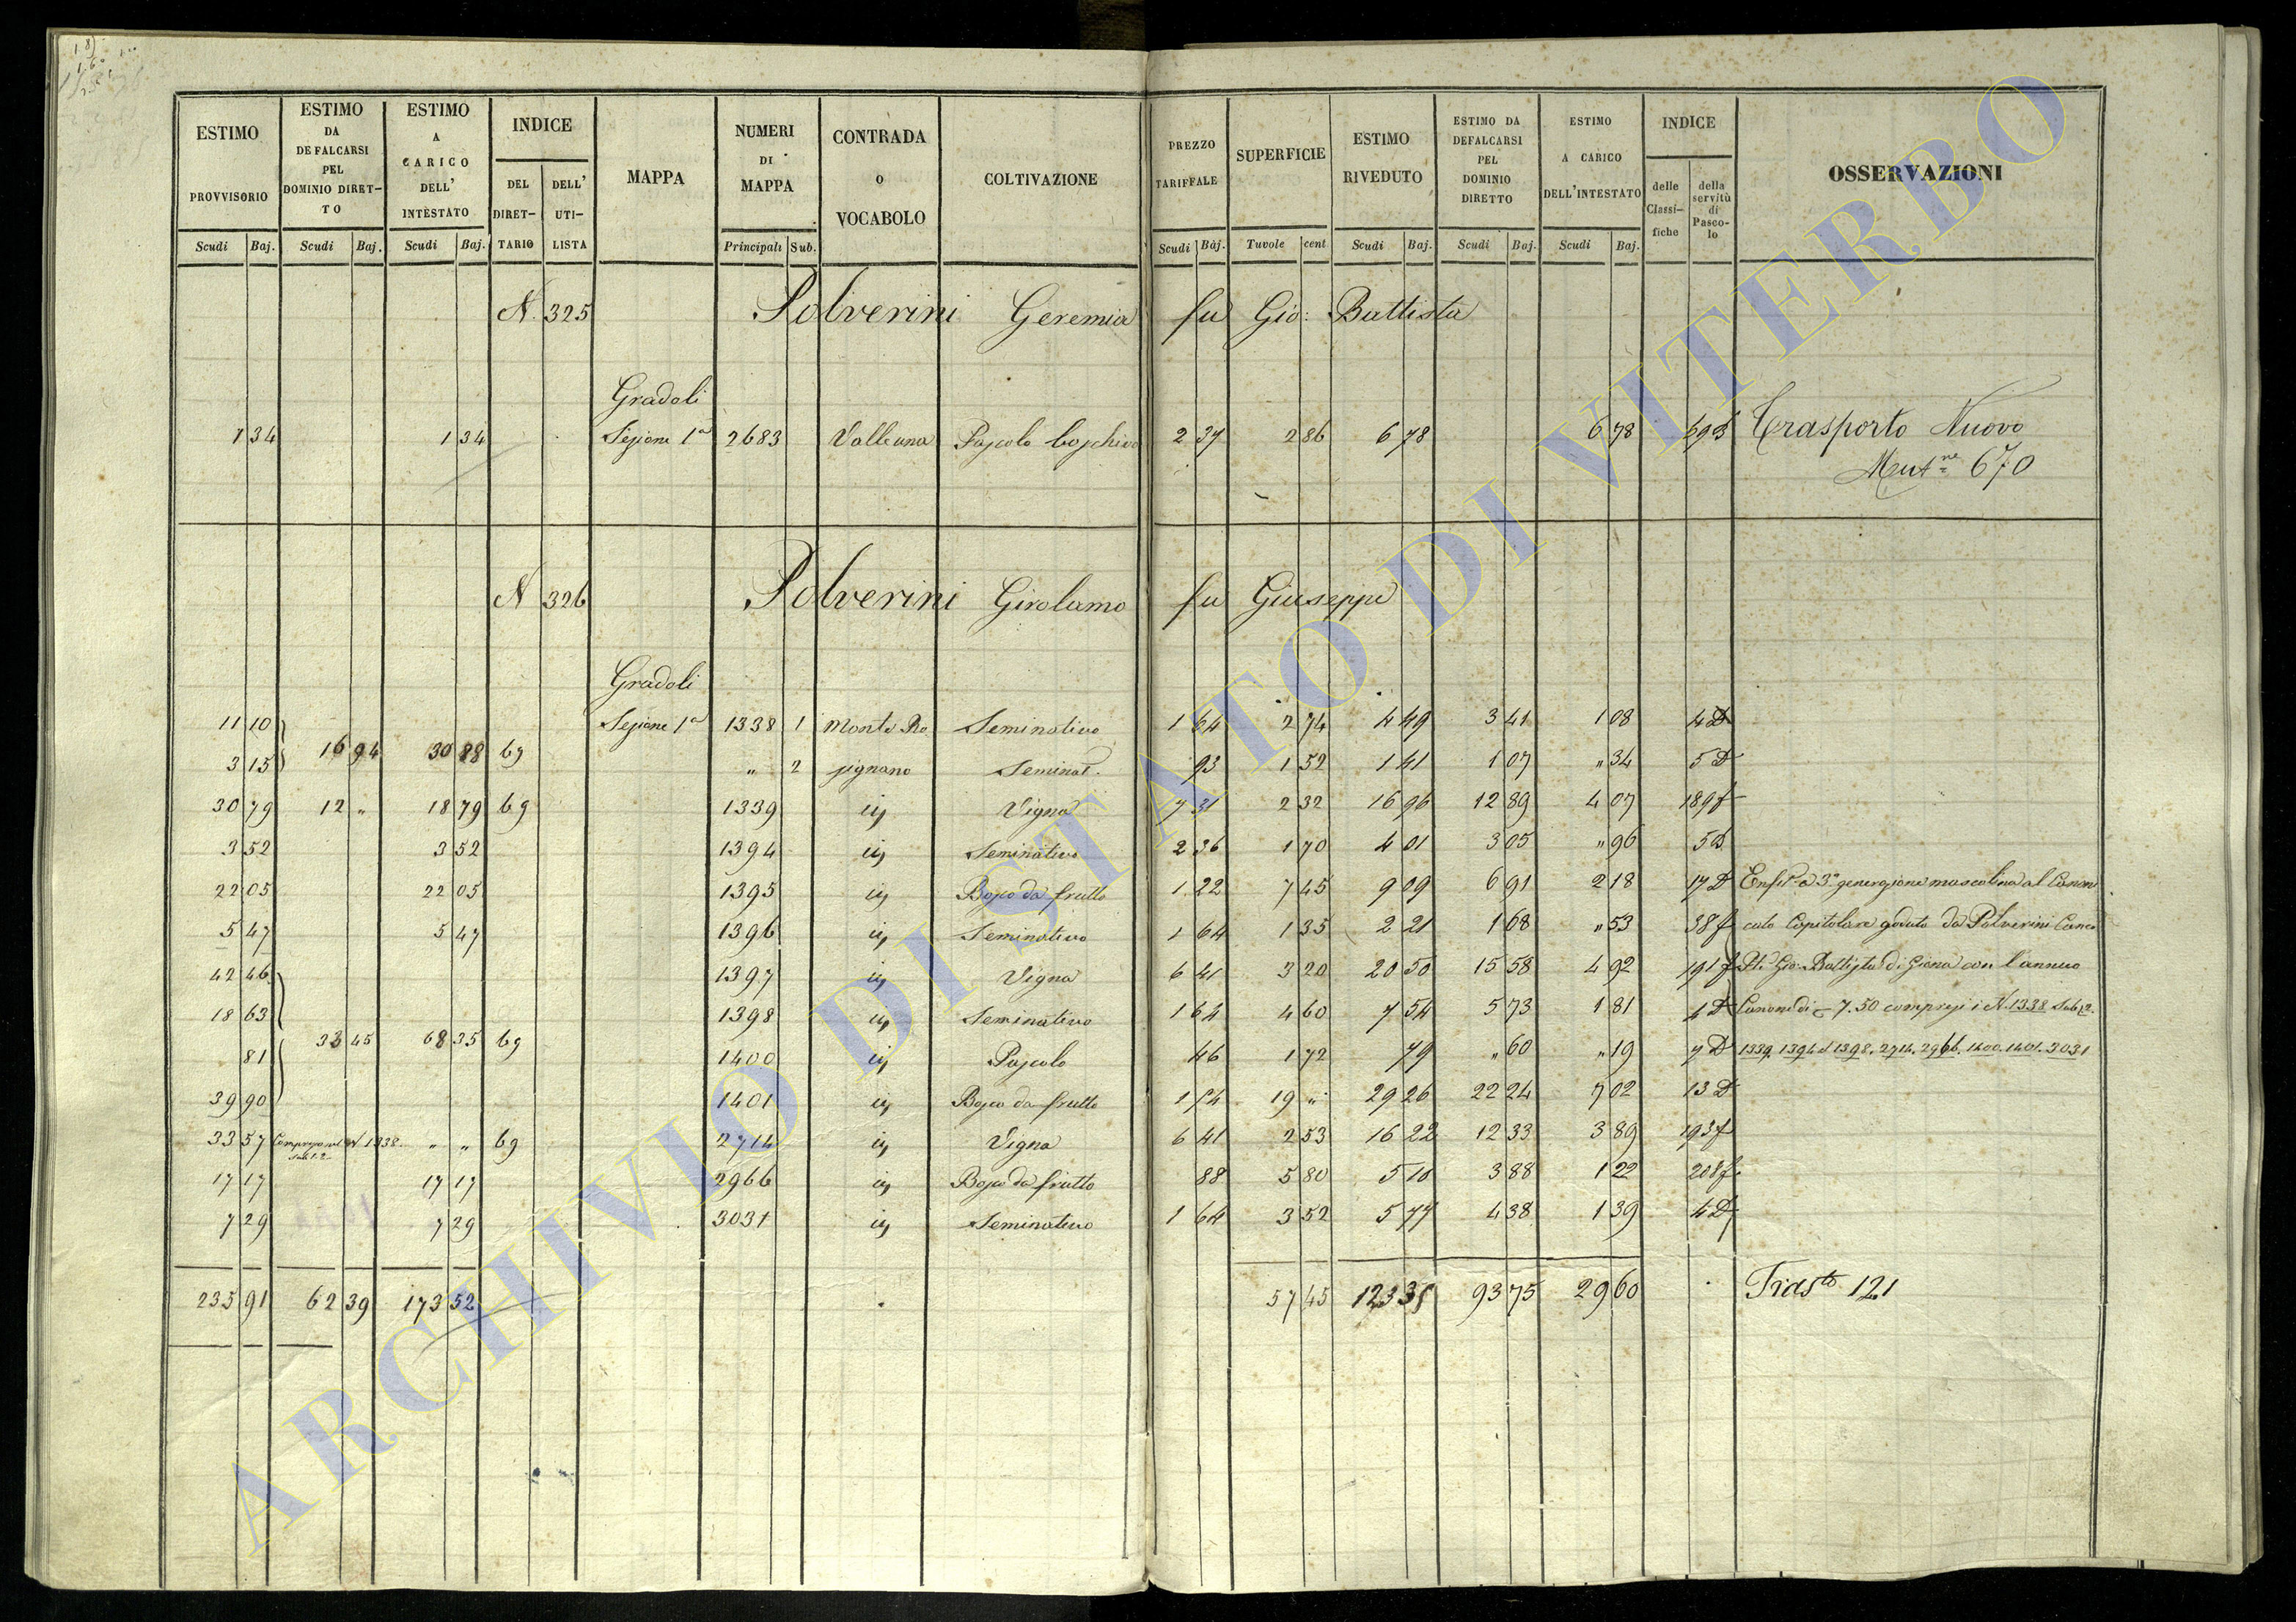 ESTIMO PROVVISORIO Scudi Baj.
ESTIMO DA DEFALCARSI PEL DOMINIO DIRET-TO Scudi Baj.
ESTIMO A CARICO DELL' INTESTATO Scudi Baj.
INDICE DEL DIRET-TARIO DELL' UTI-LISTA
MAPPA
NUMERI DI MAPPA Principali Sub.
CONTRADA O VOCABOLO
COLTIVAZIONE
PREZZO TARIFFALE Scudi Baj.
SUPERFICIE Tavole cent
ESTIMO RIVEDUTO Scudi Baj.
ESTIMO DA DEFALCARSI PEL DOMINIO DIRETTO Scudi Baj.
ESTIMO A CARICO DELL'INTESTATO Scudi Baj.
INDICE delle Classi-fiche della servitù di Pasco-lo
OSSERVAZIONI
N. 325 Polverini Geremia fu Gio: Battista
Gradoli
1 34 1 34 Sezione 1a 2683 Pascolo boschivo 2 37 2 86 6 78 6 78 Trasporto Nuovo
Mutne 670
N 326 Polverini Girolamo fu Giuseppe
Gradoli
11 10 Sezione 1a 1338 1 Monte Ro Seminativo 1 64 2 74 4 49 3 41 1 08 4 D
16 94 30 88 69
3 15 " 2 signano Seminat. 93 1 52 1 41 1 07 " 34 5 D
30 79 12 " 18 79 69 1339 id Vigna 7 31 2 32 16 96 12 89 4 07 189 f
3 52 3 52 1394 id Seminativo 2 36 1 70 4 01 3 05 " 96 5 D
22 05 22 05 1395 id Bosco da frutto 1 22 7 45 9 09 6 91 2 18 17 D Enfit. a 3a generazione mascolina al Canon
5 47 5 47 1396 id Seminativo 1 64 1 35 2 21 1 68 " 53 38 f cato Capitolare goduto da Polverini Canco
42 46 1397 id Vigna 6 41 3 20 20 50 15 58 4 92 191 f Gio: Battista di con l'annuo
18 63 1398 id Seminativo 1 64 4 60 7 54 5 73 1 81 4 D Canone di 7.50 compresi i N. 1338 Sub 1.2.
33 45 68 35 69
81 1400 id Pascolo 46 1 72 79 " 60 " 19 7 D 1339. 1394 al 1398. 2714. 2966. 1400. 1401. 3031
39 90 1401 id Bosco da frutto 1 54 19 " 29 26 22 24 7 02 13 D
33 57 Compreso nel N 1338. sub 1.2 " " 69 2714 id Vigna 6 41 2 53 16 22 12 33 3 89 193 f
17 17 17 17 2966 id Bosco da frutto 88 5 80 5 10 3 88 1 22 208 f
7 29 7 29 3031 id Seminativo 1 64 3 52 5 77 4 38 1 39 4 D
235 91 62 39 173 52 57 45 123 35 93 75 29 60 Trasto 121
ARCHIVIO DI STATO DI VITERBO